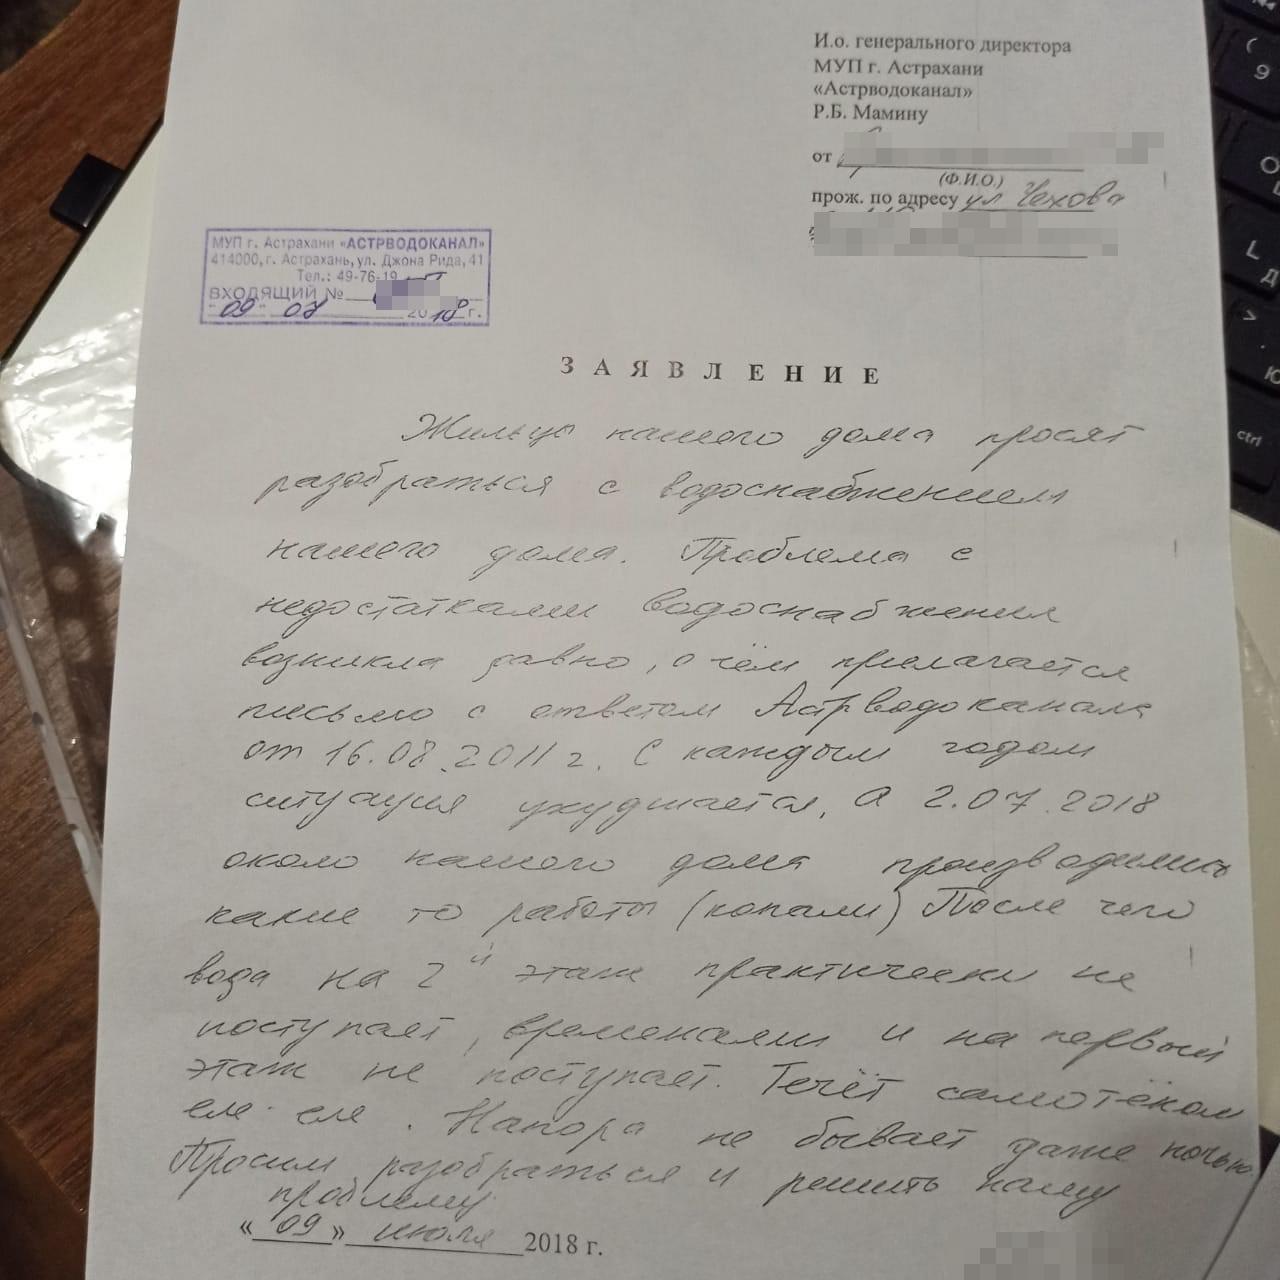 И.о. генерального директора
МУП г. Астрахани
«Астрводоканал»
Р.Б. Мамину
от
(Ф.И.О.)
прож. по адресу ул Чехова
МУП г. Астрахани «АСТРВОДОКАНАЛ»
414000, г. Астрахань, ул. Джона Рида, 41
Тел.: 49-76-19
ВХОДЯЩИЙ №
"09" 07 2018 г.
ЗАЯВЛЕНИЕ
Жильцы нашего дома просят
разобраться с водоснабжением
нашего дома. Проблема с
недостатками водоснабжения
возникла давно, о чём прилагается
письмо с ответом Астрводоканала
от 16.08.2011 г. С каждым годом
ситуация ухудшается, а 2.07.2018
около нашего дома производились
какие то работы (копали) После чего
вода на 2й этаж практически не
поступает, временами и на первый
этаж не поступает. Течёт самотёком
еле-еле. Напора не бывает даже ночью
Просим разобраться и решить нашу
проблему
«09» июля 2018 г.
9
ctrl